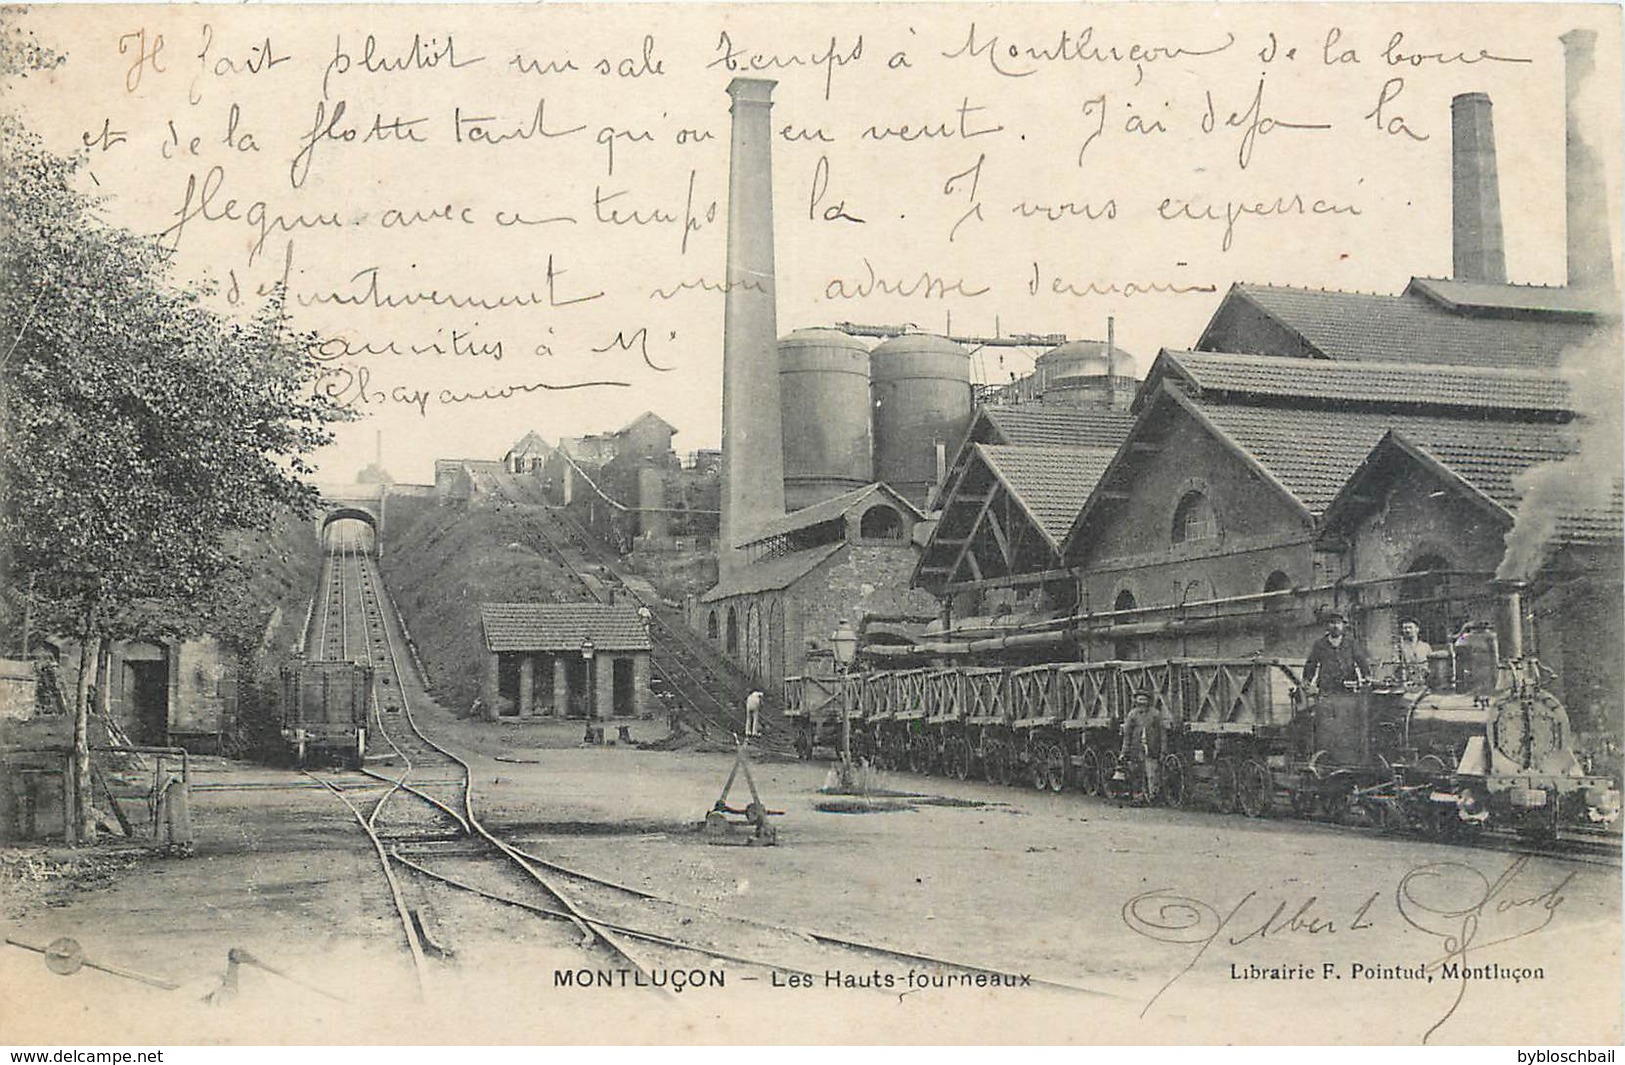 Il fait plutôt un sale temps à Montluçon de la boue
et de la flotte tant qu'on en veut. J'ai deja la
flegme avec ce temps la. Je vous enverrai
definitivement mon adresse demain
Amitiés à Mr
Albert
MONTLUÇON – Les Hauts-fourneaux
Librairie F. Pointud, Montluçon
www.delcampe.net
bybloschbail